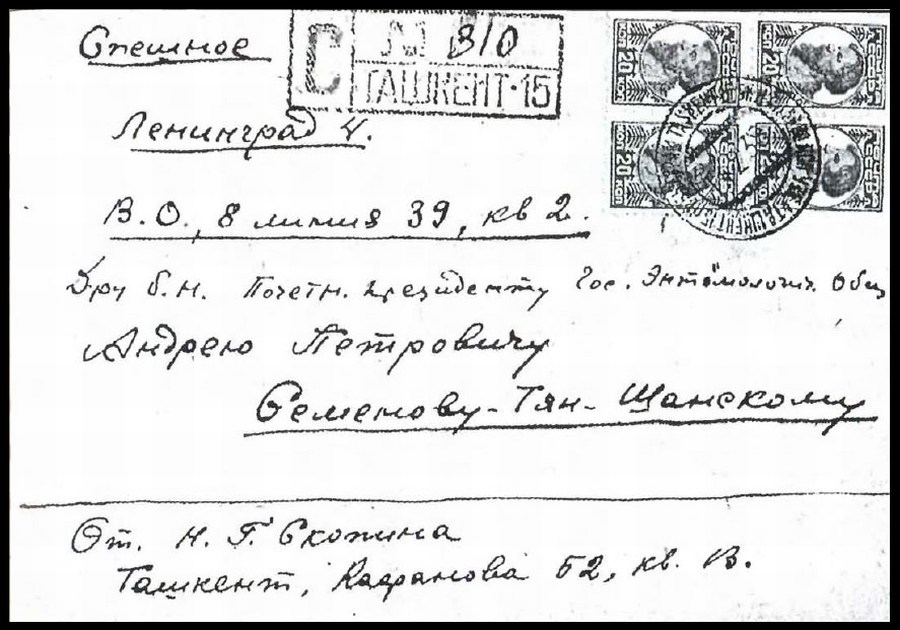 Спешное
С № 310
ТАШКЕНТ-15
20 КОП
Ленинград 4.
В.О., 8 линия 39, кв 2.
Д-ру б.н. Почетн. президенту Гос. Энтомологич. Общ
Андрею Петровичу
Семенову-Тян-Шанскому
От. Н. Г. Скопина
Ташкент, 52, кв. В.